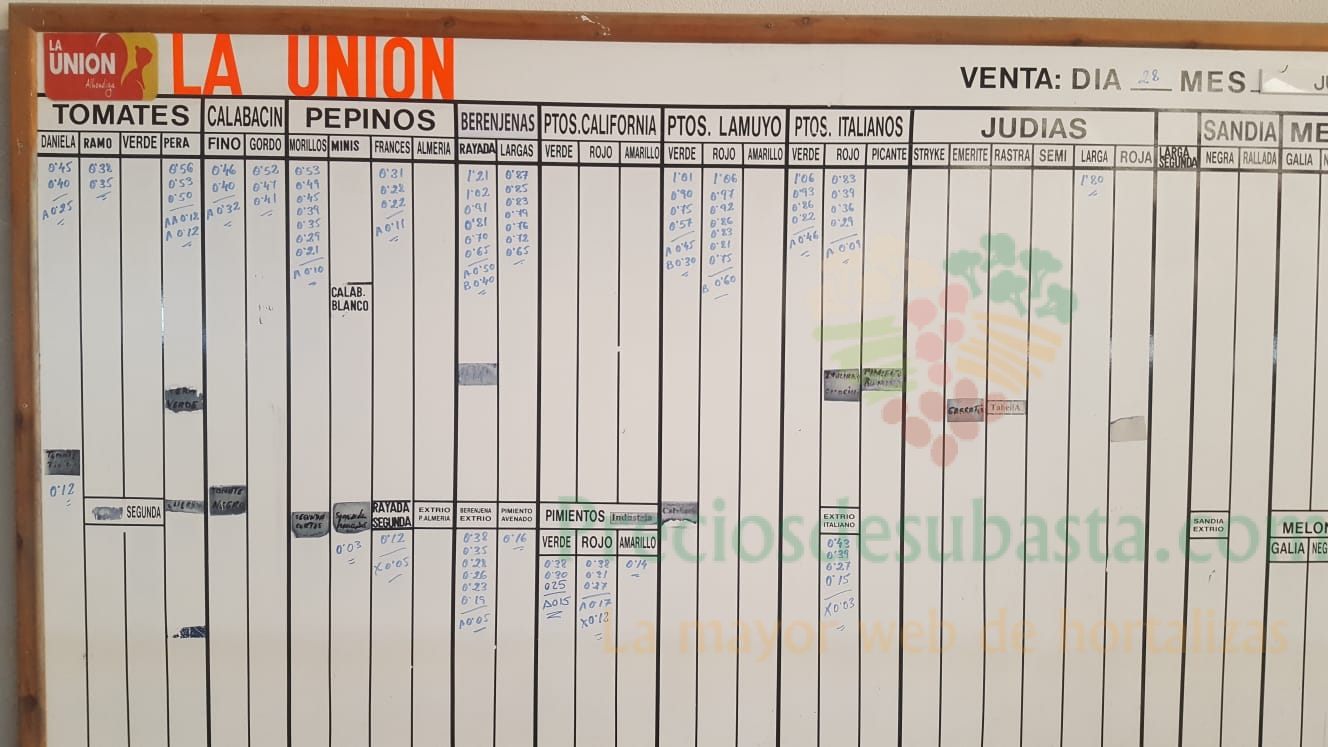 LA UNION Alhóndiga
LA UNION
VENTA: DIA 28 MES
TOMATES CALABACIN PEPINOS BERENJENAS PTOS.CALIFORNIA PTOS. LAMUYO PTOS. ITALIANOS JUDIAS SANDIA
DANIELA RAMO VERDE PERA FINO GORDO MORILLOS MINIS FRANCES ALMERIA RAYADA LARGAS VERDE ROJO AMARILLO VERDE ROJO AMARILLO VERDE ROJO PICANTE STRYKE EMERITE RASTRA SEMI LARGA ROJA LARGA SEGUNDA NEGRA RALLADA GALIA
0'45 0'38 0'56 0'46 0'52 0'53 0'31 1'21 0'87 1'01 1'06 1'06 0'83 1'80
0'40 0'35 0'53 0'40 0'47 0'49 0'28 1'02 0'85 0'90 0'97 0'93 0'39
A 0'25 0'50 A 0'32 0'41 0'45 0'22 0'91 0'83 0'75 0'92 0'86 0'36
AA 0'18 0'39 A 0'11 0'81 0'79 0'57 0'86 0'82 0'29
A 0'12 0'35 0'70 0'76 A 0'45 0'83 A 0'46 A 0'09
0'29 0'65 0'72 B 0'30 0'81
0'21 A 0'50 0'65 0'75
A 0'10 B 0'40 B 0'60
CALAB. BLANCO
VERDE
TabellA
0'12
SEGUNDA
RAYADA SEGUNDA
EXTRIO P.ALMERIA
BERENJENA EXTRIO
PIMIENTO AVENADO
PIMIENTOS Industria
EXTRIO ITALIANO
SANDIA EXTRIO
MELON
VERDE ROJO AMARILLO
GALIA
0'03 0'12 0'38 0'16 0'38 0'38 0'14 0'43
X0'05 0'35 0'30 0'31 0'39
0'28 025 0'27 0'27
0'26 A015 A0'17 0'15
0'23 X0'12 X0'03
0'19
A0'05
Preciosdesubasta.com
La mayor web de hortalizas